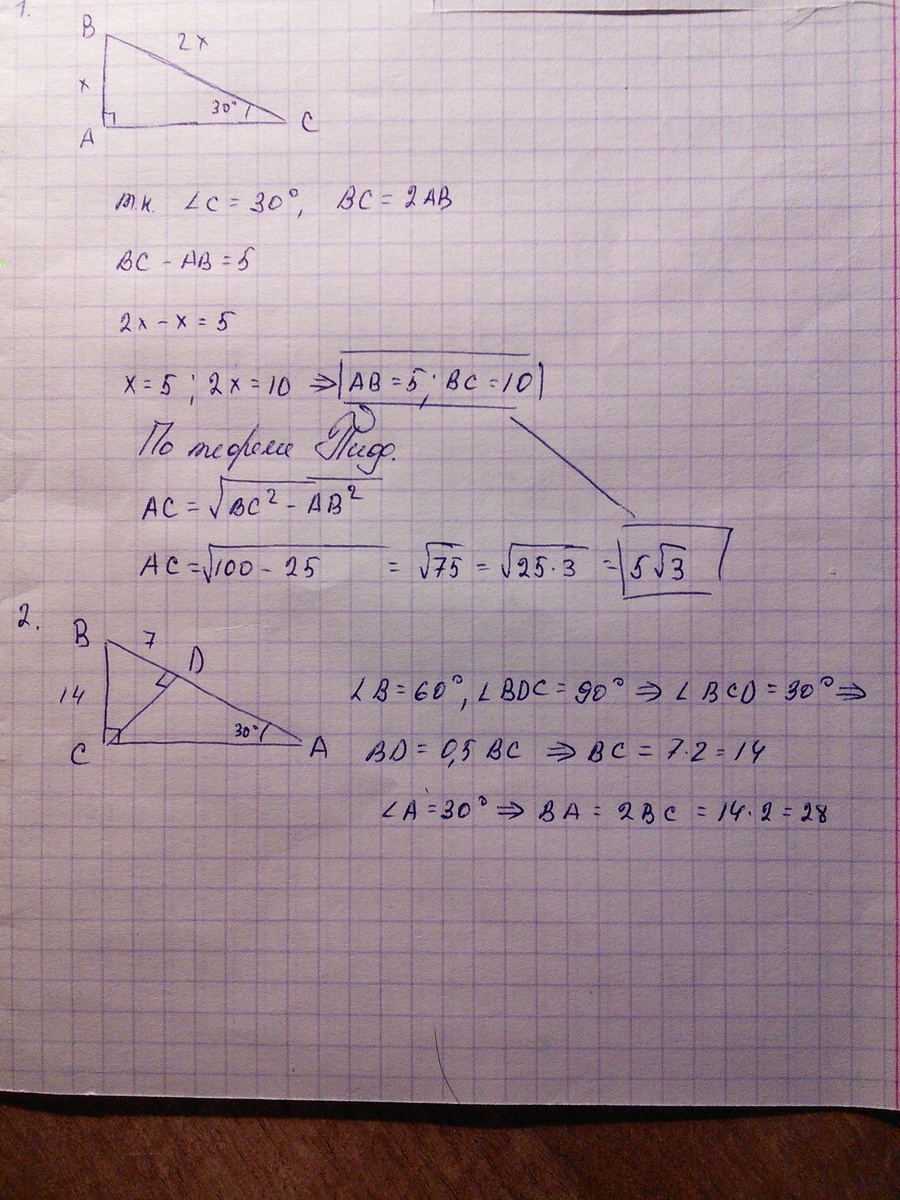 1.
B
2x
x
30°
A
C
т.к. ∠C = 30°, BC = 2AB
BC - AB = 5
2x - x = 5
x = 5 ; 2x = 10 ⇒ AB = 5; BC = 10
По теореме Пиф.
AC = √BC² - AB²
AC = √100 - 25 = √75 = √25·3 = 5√3
2.
B
7
D
14
30°
C
A
∠B = 60°, ∠BDC = 90° ⇒ ∠BCD = 30° ⇒
BD = 0,5 BC ⇒ BC = 7·2 = 14
∠A = 30° ⇒ BA = 2BC = 14·2 = 28